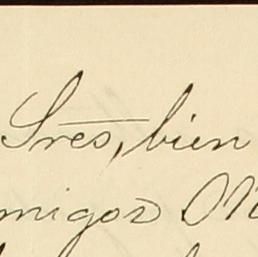 Sres, bien
migos